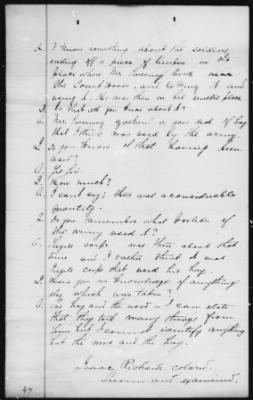 A. I know something about the soldiers
ending off a piece of timber on the
place where Mr Sweeney lived near
the Court House, and taking it and
using it. He was then on his uncles place
Q. Is that all you know about it?
A. Mr. Sweeney gathered a good deal of hay
that I think was used by the army.
Q. Do you know of that having been
used?
A. Yes Sir
Q. How much?
A. I can't say; there was a considerable
quantity.
Q. Do you remember what portion of
the army used it?
A. Sigels corps was there about that
time and I rather think it was
Sigels corps that used his hay.
Q. Have you no knowledge of anything
else which was taken?
A. The hay and the wood - I can state
that they took many things from
him but I cannot identify anything
but the wood and the hay.
Isaac Richards colord.
Sworn and examined.
47